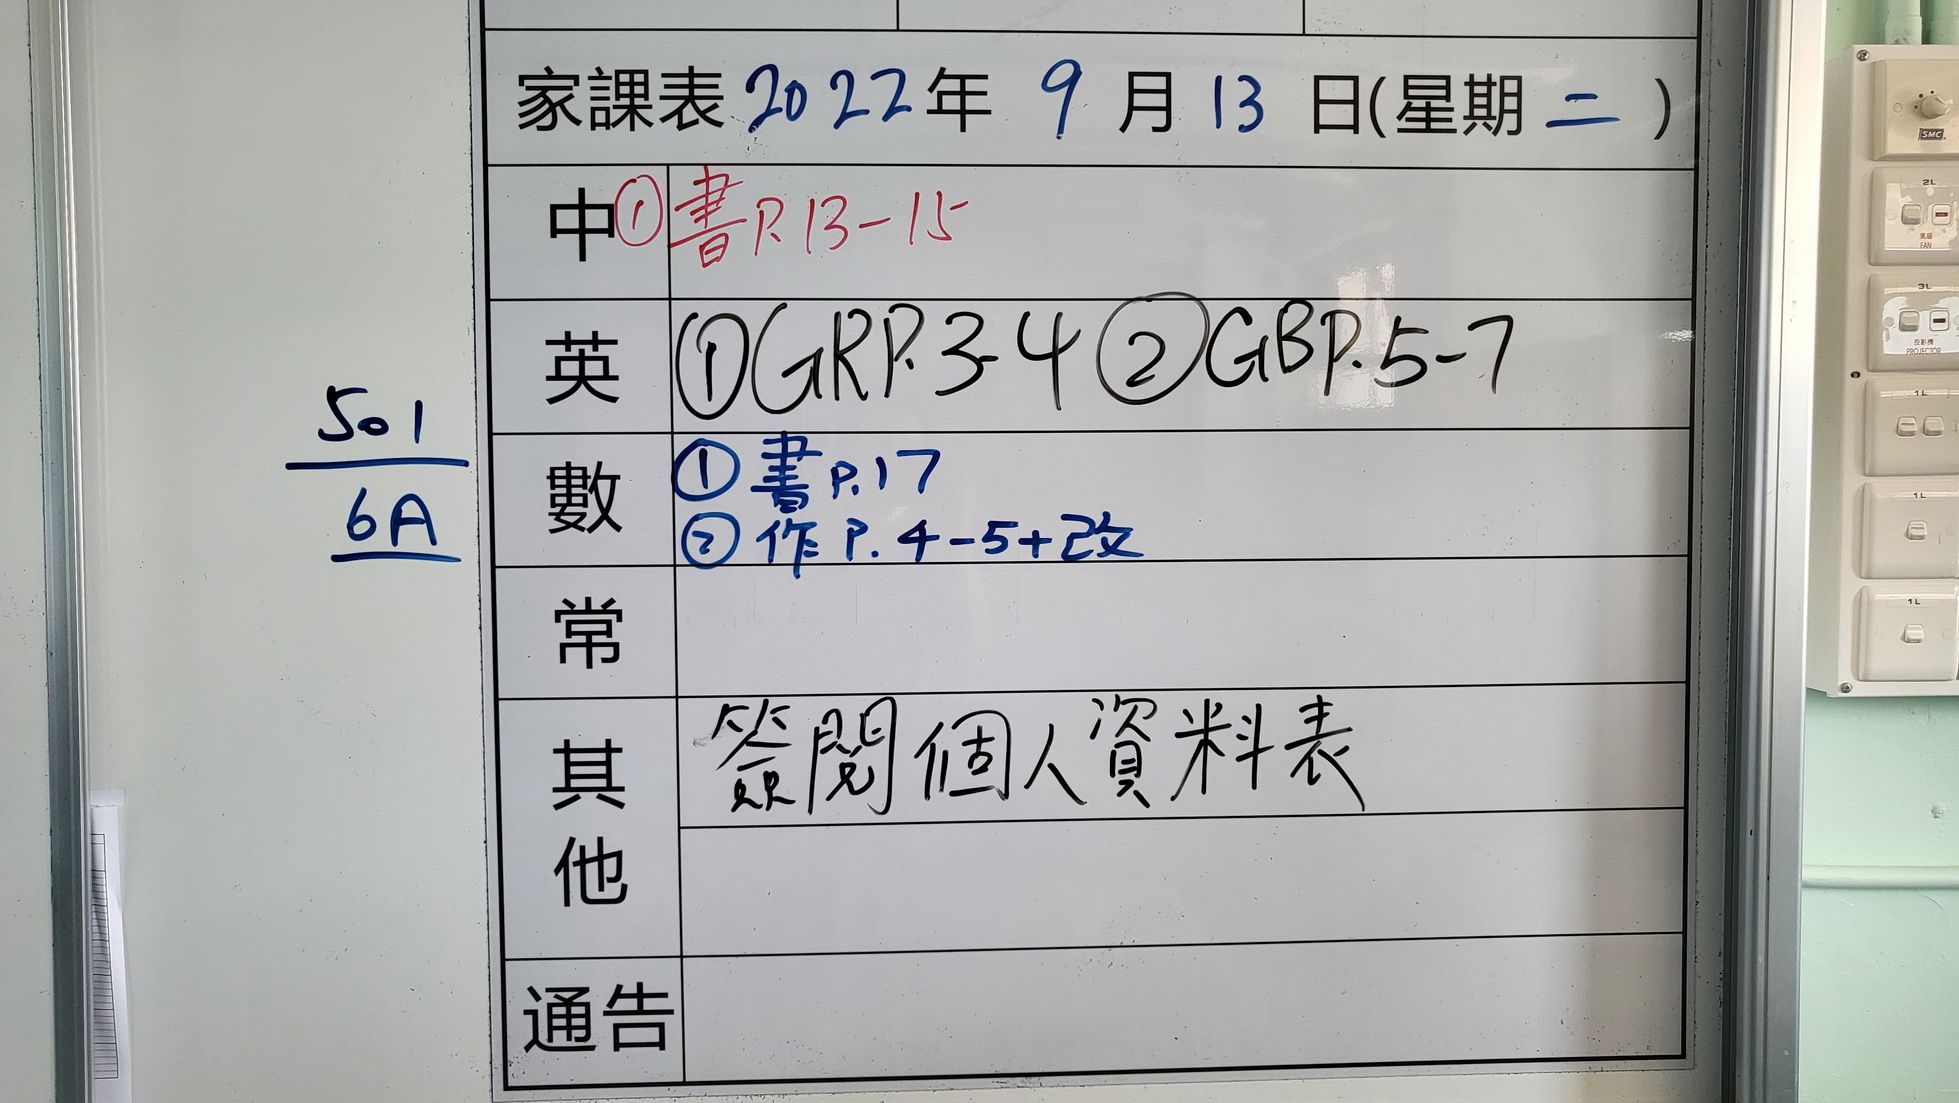 家課表 2022年 9月 13日(星期二)
中 ① 書P.13-15
英 ①GRP.3-4 ②GBP.5-7
數 ① 書P.17
② 作P.4-5+改
常
其他 簽閱個人資料表
通告
501
6A
SMC
2L
風扇
FAN
3L
投影機
PROJECTOR
1L
1L
1L